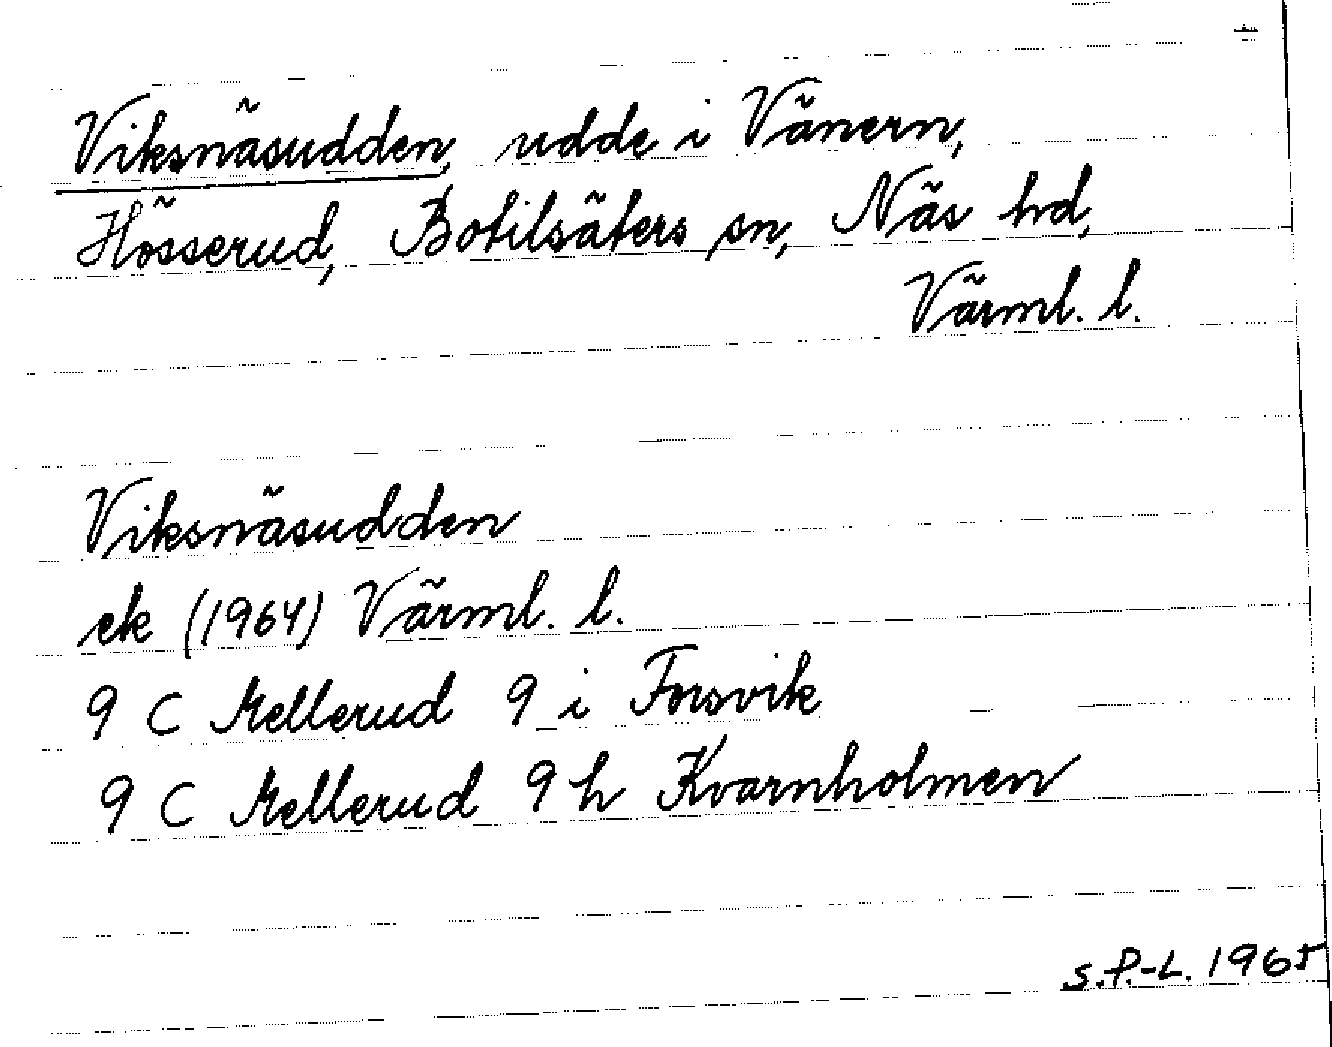 Viksnäsudden, udde i Vänern,
Hösserud, Botilsäters sn, Näs hd,
Värml. l.
Viksnäsudden
ek (1964) Värml. l.
9 C Mellerud 9 i Forsvik
9 C Mellerud 9 h Kvarnholmen
S.P.-L. 1965